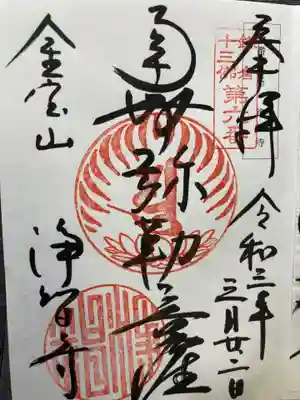 奉拝
鎌倉
十三佛
第六番
令和三年
三月廿二日
弥勒菩薩
金宝山
浄智寺